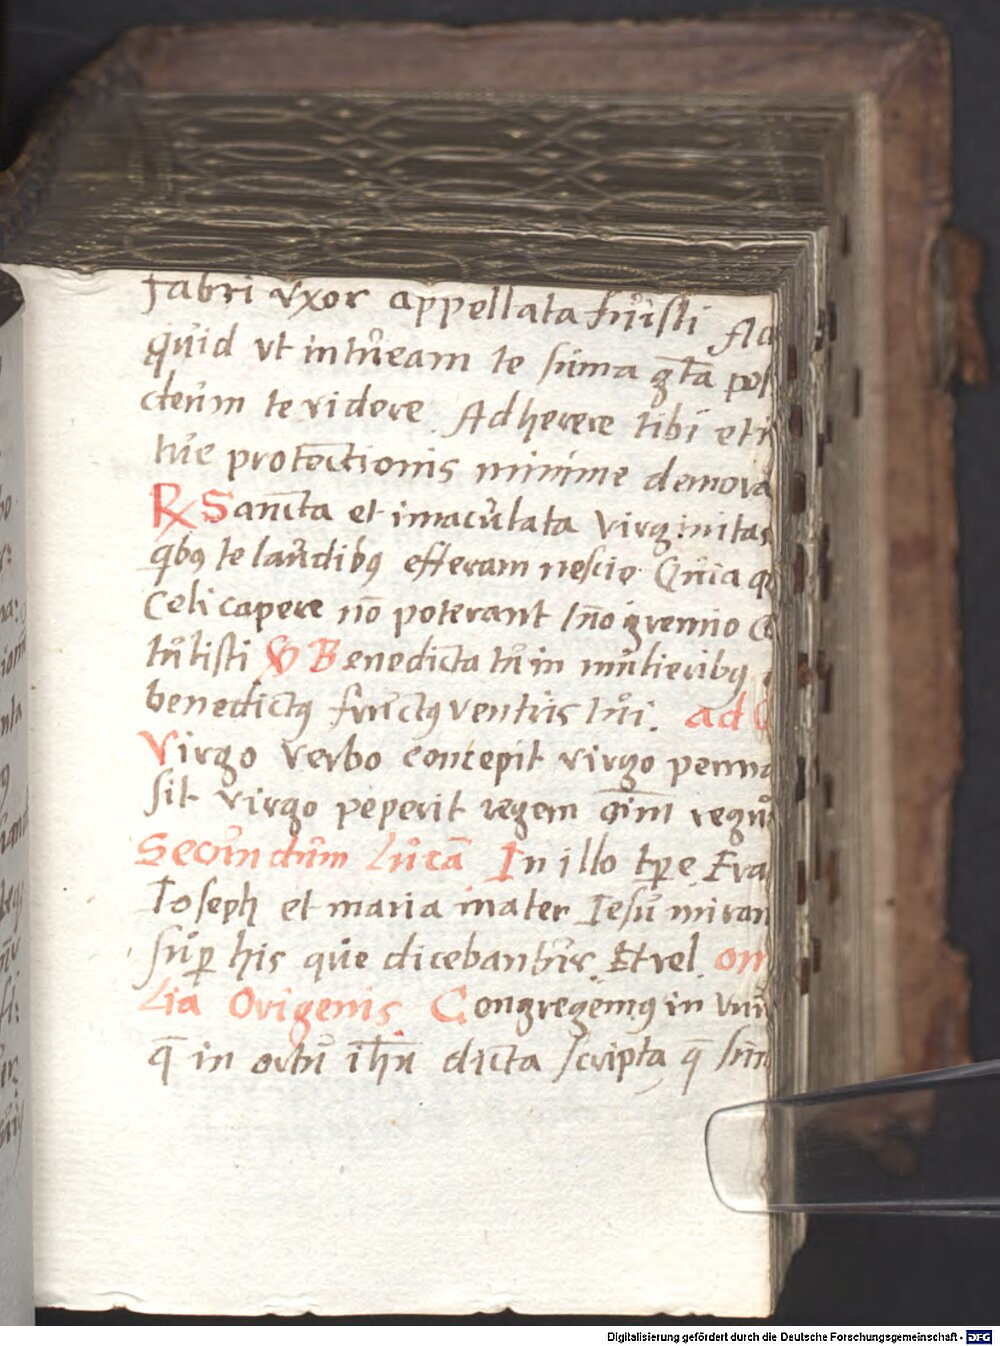 fabri vxor appellata fuisti Ad
quid vt intueam te sūma gr̄ta pos
deum te videre. Adherere tibi et i
tue protectionis minime demova
R Sancta et imaculata virginitas
qbꝰ te laudibꝰ efferam nescio Quia q
Celi capere nō poterant Tuo gremio co
tulisti V Benedicta tu in mulieribꝰ
benedictꝰ fructꝰ ventris tui. ad
Virgo verbo concepit virgo perma
sit virgo peperit regem oīm regū
Secundum Lucā In illo tꝑe Era
Ioseph et maria mater Iesu miran
suꝑ his que dicebantur. Et rel. om
lia Origenis. Congregemꝰ in vnū
q̄ in ortu ihū dicta scripta q̄ sun
Digitalisierung gefördert durch die Deutsche Forschungsgemeinschaft - DFG